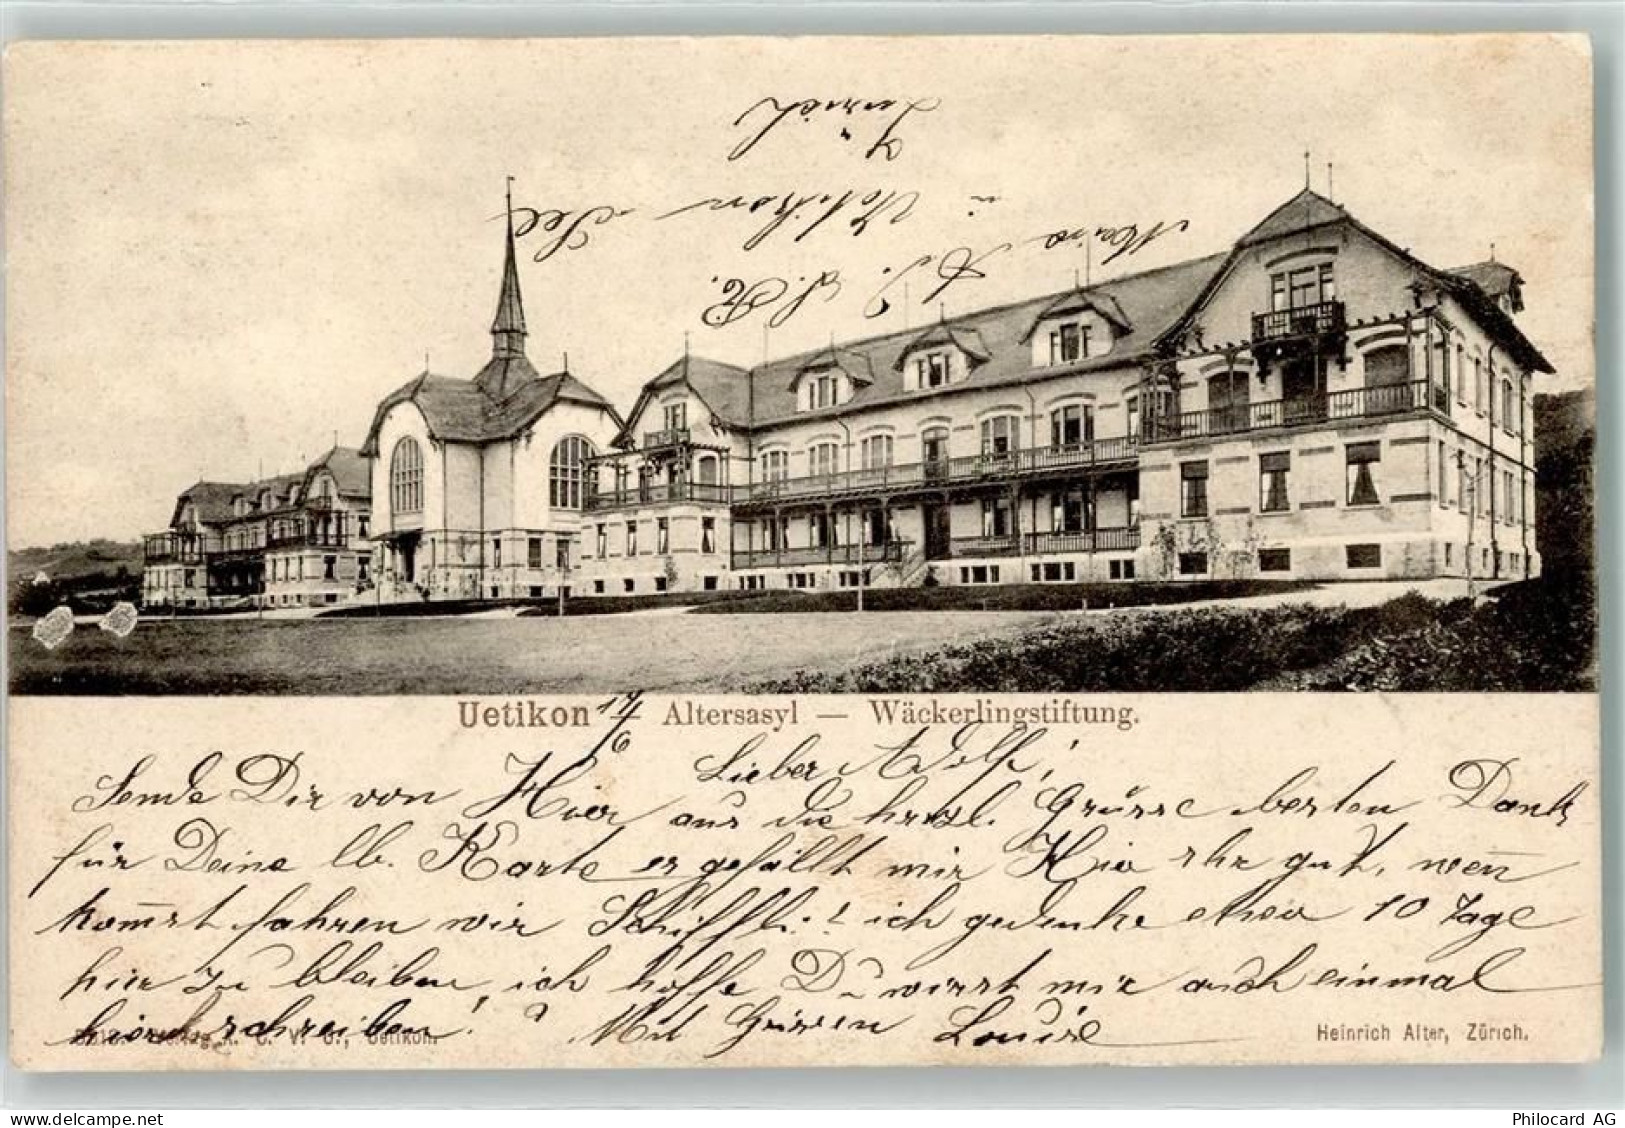 Uetikon — Altersasyl — Wäckerlingstiftung.
17/6
Lieber Adolf!
Sende Dir von Hier aus die herzl. Grüsse besten Dank
für Deine lb. Karte es gefällt mir Hier sehr gut, wen̄
kom̄st fahren wir Schiffli! ich gedenke etwa 10 Tage
hier zu bleiben, ich hoffe Du wirst mir auch einmal
hierherschreiben! Mit Grüssen Louise
Uetikon.
Heinrich Alter, Zürich.
Adr.
Uetikon See
Zürich
delcampe.net
Philocard AG